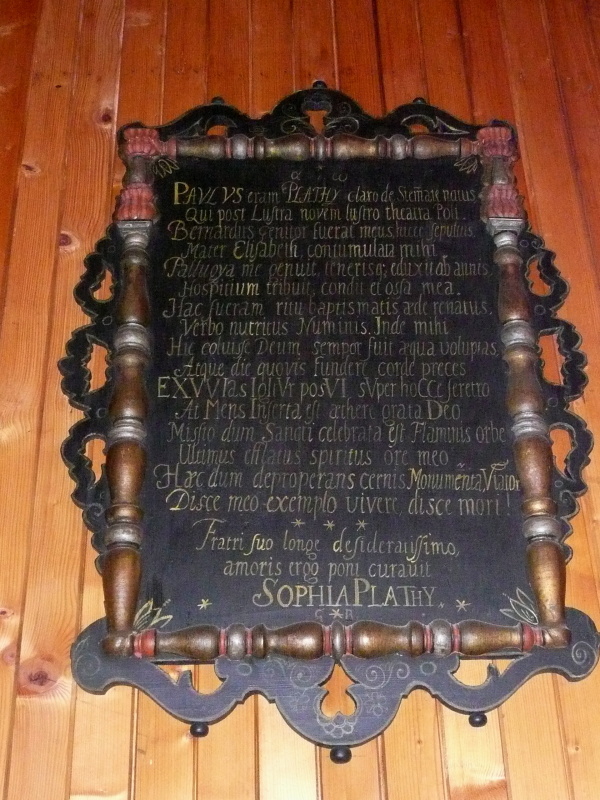 α * ω
PAVLVS eram PLATHY claro de Stem̄ate natus
Qui post Lustra novem lustro theatra Poli.
Bernardus genitor fuerat meus, hicce sepultus,
Mater Elisabeth, contumulata mihi.
me genuit, tenerisq; eduxit ab annis,
Hospitium tribuit, condit et ossa mea.
Hac fueram ritu baptismatis æde renatus,
Verbo nutritus Numinis. Inde mihi
Hic coluisse Deum, semper fuit æqua voluptas,
Atque die quovis fundere corde preces
EXVVIas sVper hoCCe feretro
At Mens Inserta est æthere grata Deo
Missio dum Sancti celebrata est Flaminis orbe
Ultimus efflatus spiritus ore meo
Hæc dum deproperans cernis Monumēnta, Viator
Disce meo exemplo vivere, disce mori!
* * *
Fratri suo longe desideratissimo,
amoris ergo poni curavit
* SOPHIA PLATHY. *